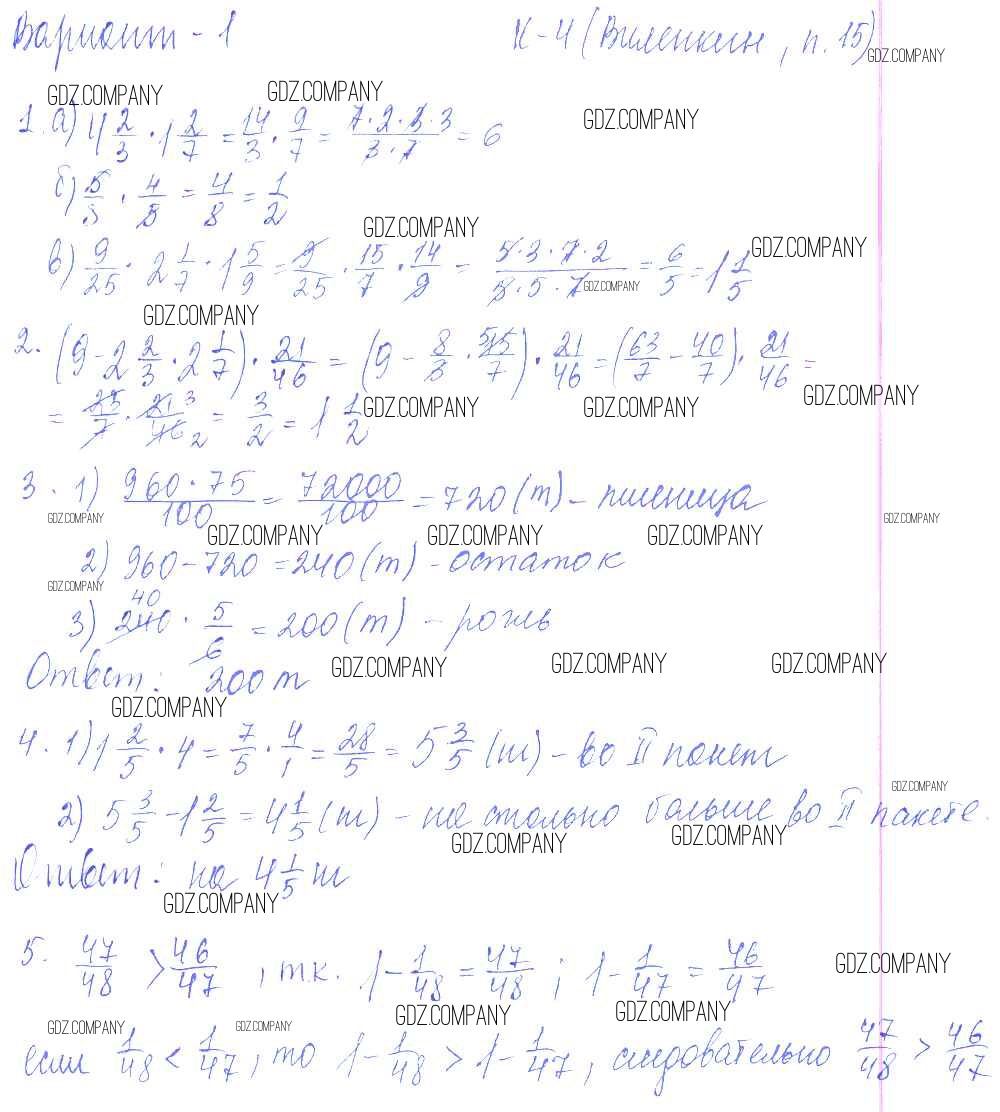 Вариант - 1 К-4 (Виленкин, п. 15)
GDZ.COMPANY
GDZ.COMPANY GDZ.COMPANY
GDZ.COMPANY
1. а) 4 2/3 · 1 2/7 = 14/3 · 9/7 = 7·2·3·3/3·7 = 6
б) 5/8 · 4/5 = 4/8 = 1/2
GDZ.COMPANY
GDZ.COMPANY
в) 9/25 · 2 1/7 · 1 5/9 = 9/25 · 15/7 · 14/9 = 5·3·7·2/5·5·7 = 6/5 = 1 1/5
GDZ.COMPANY
GDZ.COMPANY
2. (9 - 2 2/3 · 2 1/7) · 21/46 = (9 - 8/3 · 15 5/7) · 21/46 = (63/7 - 40/7) · 21/46 =
GDZ.COMPANY
= 23/7 · 21 3/46 2 = 3/2 = 1 1/2
GDZ.COMPANY GDZ.COMPANY
3. 1) 960·75/100 = 72000/100 = 720 (т) - пшеница
GDZ.COMPANY GDZ.COMPANY
GDZ.COMPANY GDZ.COMPANY GDZ.COMPANY
2) 960 - 720 = 240 (т) - остаток
GDZ.COMPANY
3) 240 40 · 5/6 = 200 (т) - рожь
Ответ: 200 т
GDZ.COMPANY GDZ.COMPANY GDZ.COMPANY
GDZ.COMPANY
4. 1) 1 2/5 · 4 = 7/5 · 4/1 = 28/5 = 5 3/5 (т) - во II пакет
GDZ.COMPANY
2) 5 3/5 - 1 2/5 = 4 1/5 (т) - на столько больше во II пакете.
GDZ.COMPANY GDZ.COMPANY
Ответ: на 4 1/5 т
GDZ.COMPANY
5. 47/48 > 46/47, т.к. 1 - 1/48 = 47/48; 1 - 1/47 = 46/47
GDZ.COMPANY
GDZ.COMPANY GDZ.COMPANY GDZ.COMPANY GDZ.COMPANY
если 1/48 < 1/47, то 1 - 1/48 > 1 - 1/47, следовательно 47/48 > 46/47